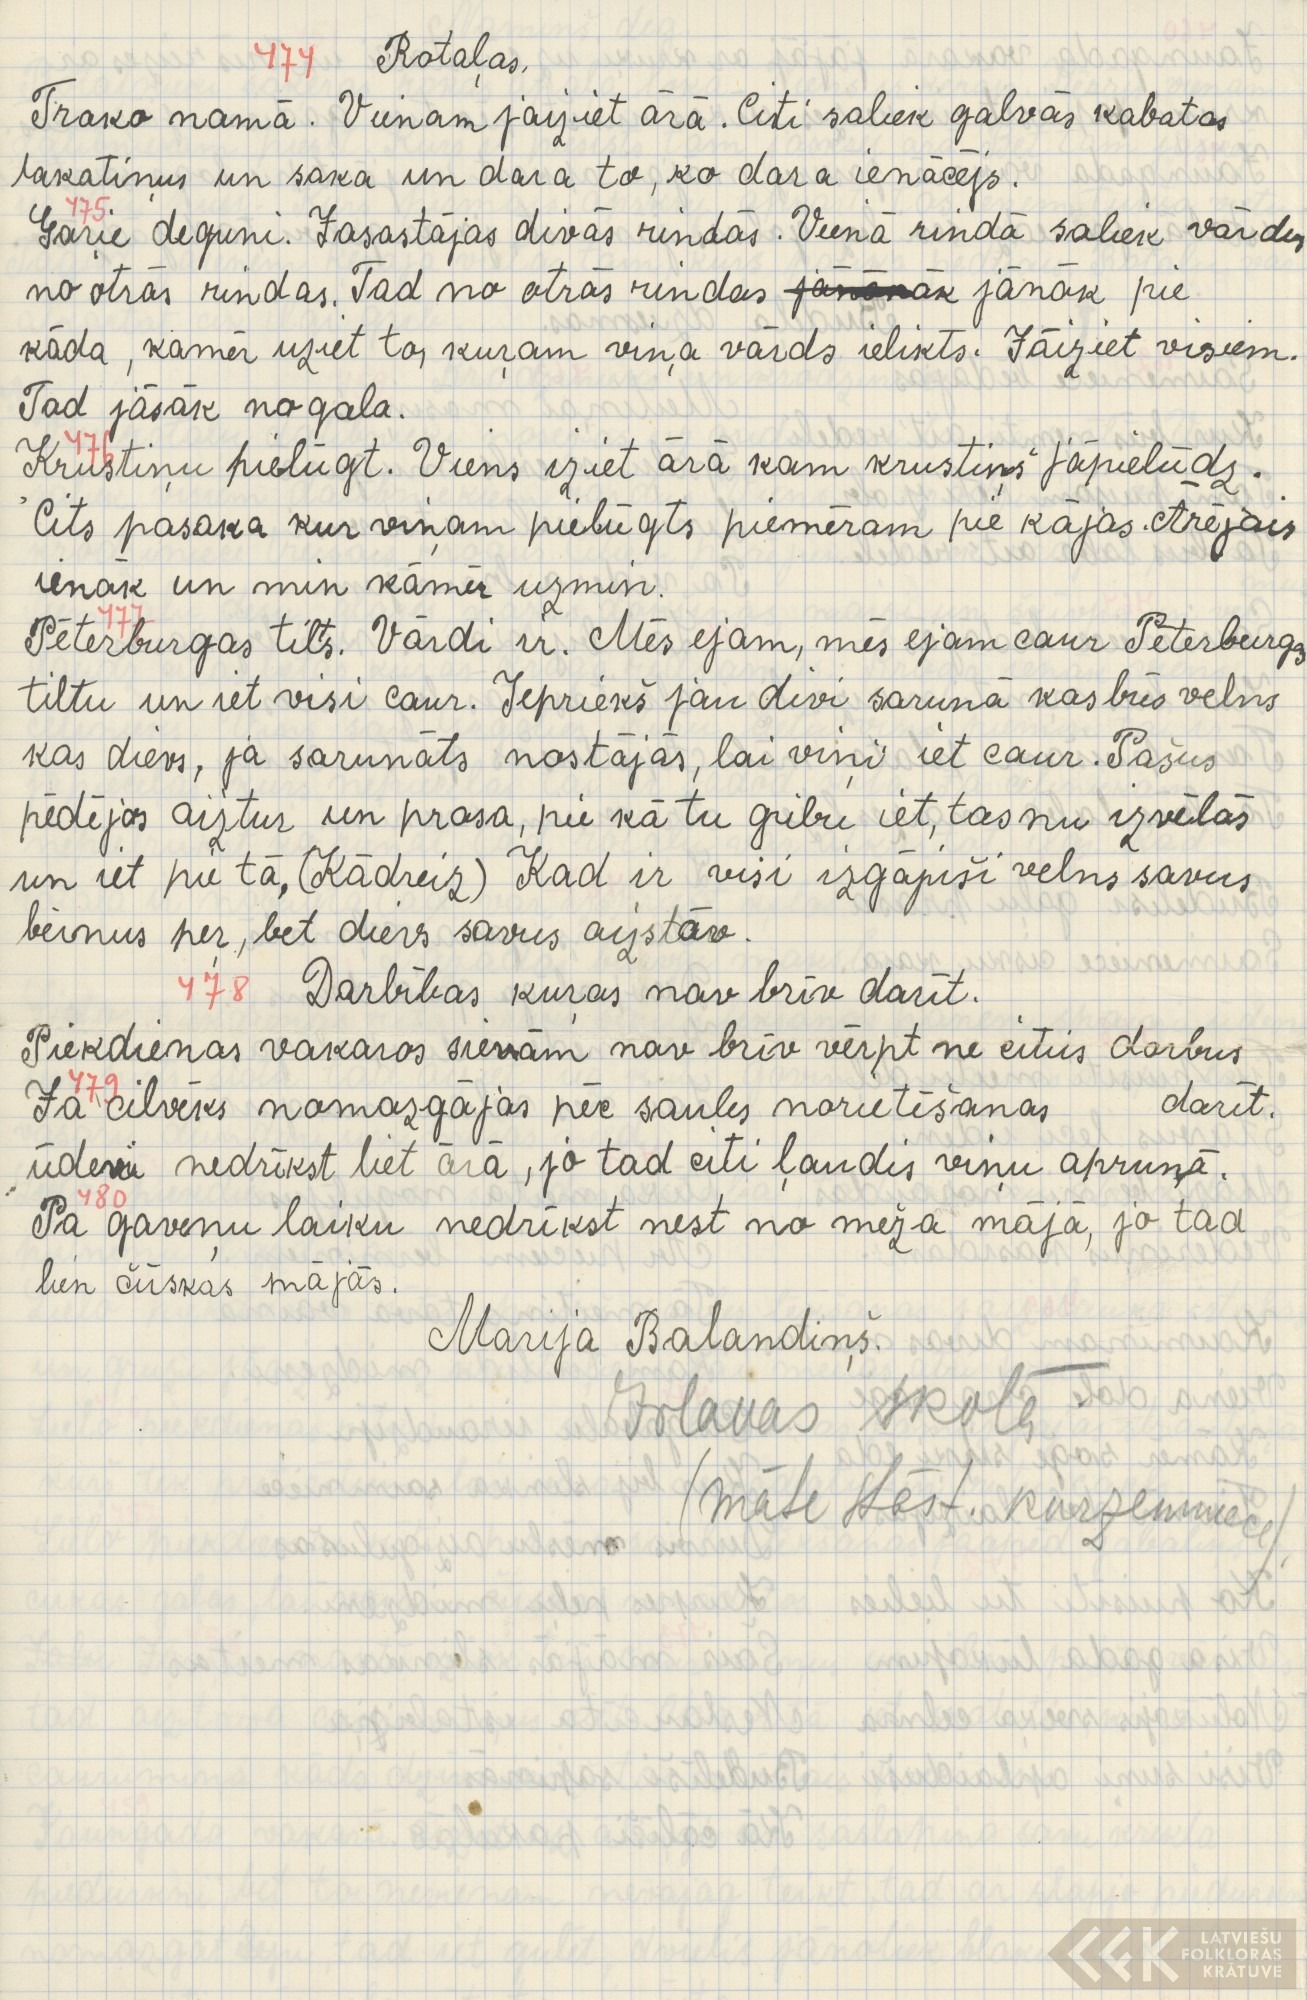 474 Rotaļas.
Trako namā. Vienam jāiziet ārā. Citi saliek galvās kabatas
lakatiņus un saka un dara to, ko dara ienācējs.
475
Garie deguni. Jāsastājas divās rindās. Vienā rindā saliek vārdus
no otrās rindas. Tad no otrās rindas jānāk pie
kāda, kamēr uziet to, kuŗam viņa vārds ielikts. Jāiziet visiem.
Tad jāsāk no gala.
476
Krustiņu pielūgt. Viens iziet ārā kam krustiņš jāpielūdz.
Cits pasaka kur viņam pielūgts piemēram pie kājas. Ārējais
ienāk un min kāmēr uzmin.
477
Pēterburgas tilts. Vārdi ir. Mēs ejam, mēs ejam caur Pēterburgs
tiltu un iet visi caur. Iepriekš jau divi sarunā kas būs velns
kas dievs, ja sarunāts nostājās, lai viņi iet caur. Pašus
pēdējos aiztur un prasa, pie kā tu gribi iet, tas nu izvēlās
un iet pie tā, (Kādreiz) Kad ir visi izgājuši velns savus
bērnus peŗ, bet dievs savus aizstāv.
478 Darbības kuŗas nav brīv darīt.
Piekdienas vakaros sievām nav brīv vērpt ne citus darbus
darīt.
479
Ja cilvēks nomazgājās pēc saules norietēšanas
ūdeni nedrīkst liet ārā, jo tad citi ļaudis viņu aprunā.
480
Pa gaveņu laiku nedrīkst nest no meža mājā, jo tad
lien čūskas mājās.
Marija Balandiņš.
Irlavas skolā
(māte stāst. kurzemniece)
LATVIEŠU
FOLKLORAS
KRĀTUVE